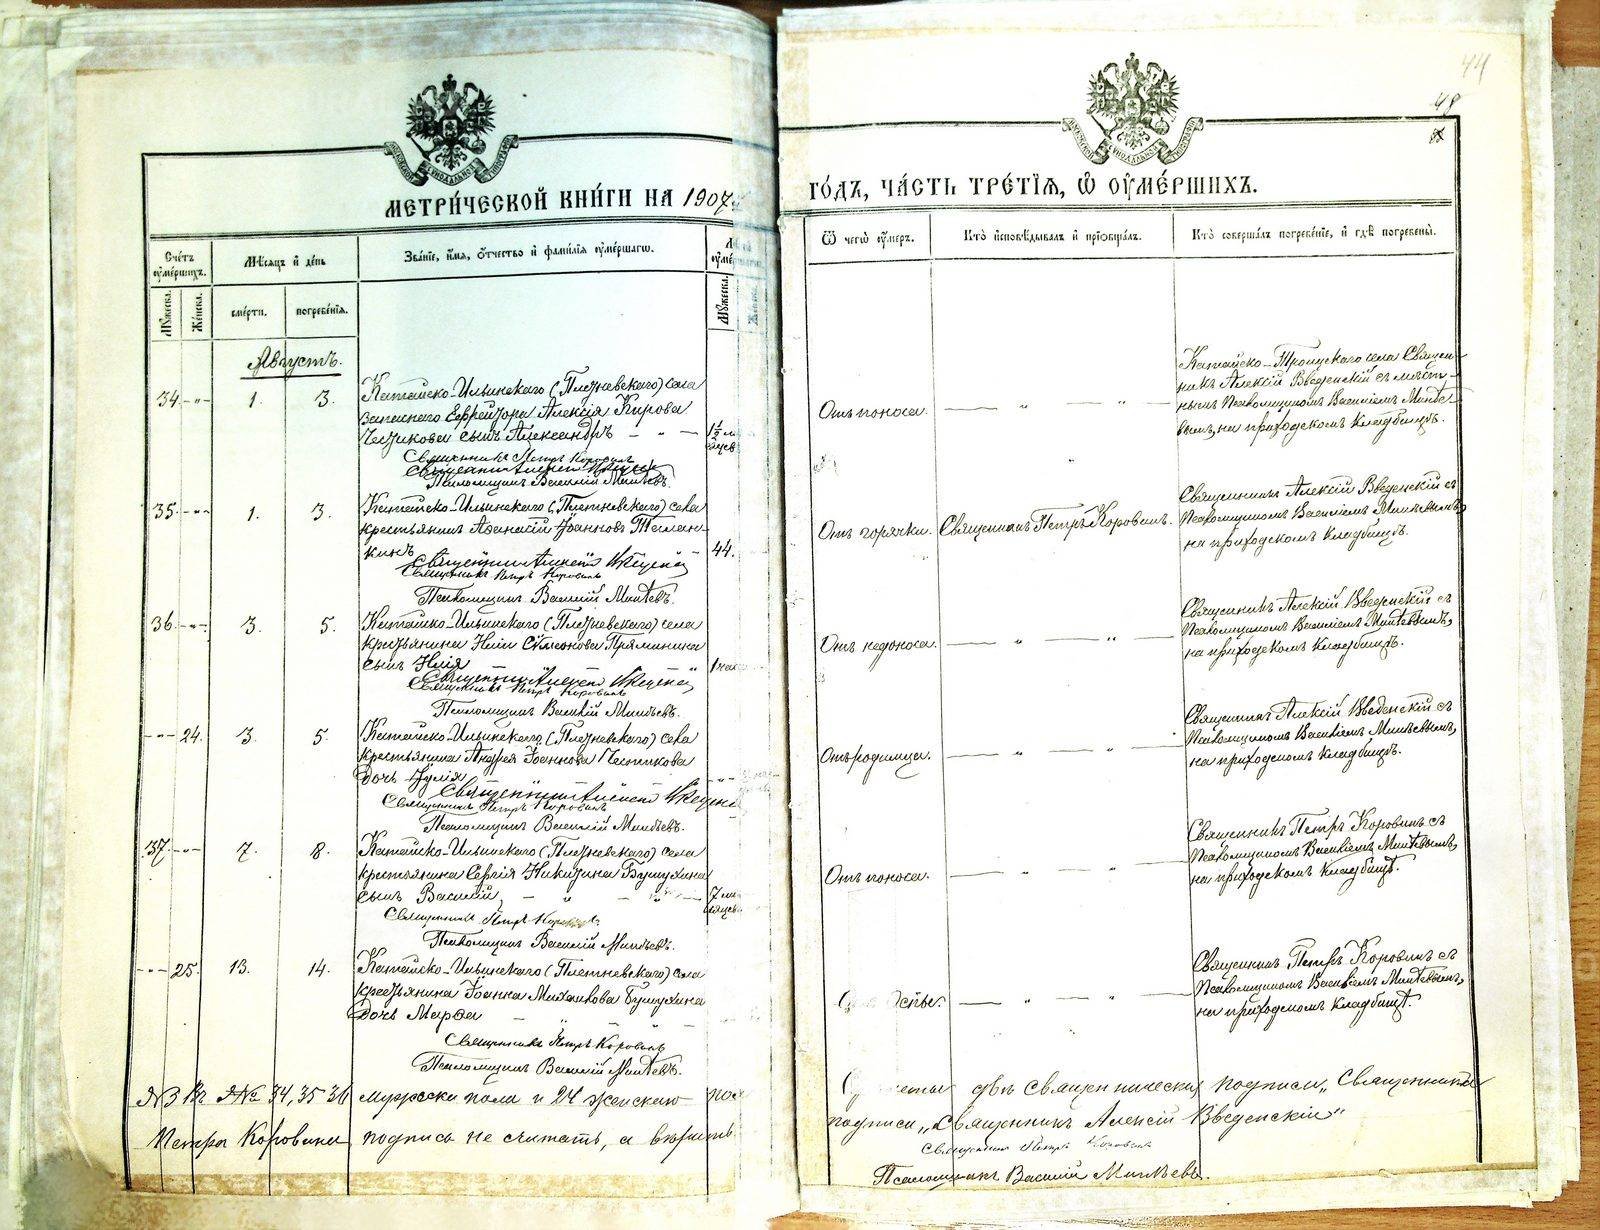 44
48
МЕТРИЧЕСКОЙ КНИГИ НА 1907
ГОДЪ, ЧАСТЬ ТРЕТІѦ, Ѡ ОУМЕРШИХЪ.
Счетъ оумершихъ.
Мѣсяцъ и день
Званіе, имя, отчество и фамилія оумершагѡ.
Мужеска.
Женска.
смерти.
погребенія.
Мужеска
Женска
Ѿ чегѡ оумеръ.
Кто исповѣдывалъ и пріобщалъ.
Кто совершалъ погребеніе, и гдѣ погребены.
Августъ.
34 - „ - 1. 3.
Катайско-Ильинскаго (Плетневскаго) села
запаснаго Ефрейтора Алексія Кирова
сынъ Александръ - „ -
1½ мѣ
Священникъ Петръ Коровинъ
Псаломщикъ Василій Минѣевъ.
Отъ поноса.
Катайско-Троицкаго села Священ-
никъ Алексій Введенскій съ мѣст-
нымъ Псаломщикомъ Василіемъ Минѣе-
вымъ, на приходскомъ кладбищѣ.
35 - „ - 1. 3.
Катайско-Ильинскаго (Плетневскаго) села
крестьянинъ Аѳанасій Іоанновъ Телен-
кинъ
44.
Священникъ Петръ Коровинъ
Псаломщикъ Василій Минѣевъ.
Отъ горячки.
Священникъ Петръ Коровинъ.
Священникъ Алексій Введенскій съ
Псаломщикомъ Василіемъ Минѣевымъ,
на приходскомъ кладбищѣ.
36 - „ - 3. 5.
Катайско-Ильинскаго (Плетневскаго) села
крестьянина Иліи Симеонова Пряминина
сынъ Илія
Священникъ Петръ Коровинъ
Псаломщикъ Василій Минѣевъ.
Отъ недоноса.
Священникъ Алексій Введенскій съ
Псаломщикомъ Василіемъ Минѣевымъ,
на приходскомъ кладбищѣ.
- „ - 24. 3. 5.
Катайско-Ильинскаго (Плетневскаго) села
крестьянина Андрея Іоаннова
дочь Іулія
Священникъ Петръ Коровинъ
Псаломщикъ Василій Минѣевъ.
Отъ родимца.
Священникъ Алексій Введенскій съ
Псаломщикомъ Василіемъ Минѣевымъ,
на приходскомъ кладбищѣ.
37. - „ - 7. 8.
Катайско-Ильинскаго (Плетневскаго) села
крестьянина Сергія Никитина Бушухина
сынъ Василій, - „ -
7 мѣ
сяцев
Священникъ Петръ Коровинъ
Псаломщикъ Василій Минѣевъ.
Отъ поноса.
Священникъ Петръ Коровинъ съ
Псаломщикомъ Василіемъ Минѣевымъ,
на приходскомъ кладбищѣ.
- „ - 25. 13. 14.
Катайско-Ильинскаго (Плетневскаго) села
крестьянина Іоанна Михаилова Бушухина
дочь Марѳа
Священникъ Петръ Коровинъ
Псаломщикъ Василій Минѣевъ.
Священникъ Петръ Коровинъ съ
Псаломщикомъ Василіемъ Минѣевымъ,
на приходскомъ кладбищѣ.
NB Въ №№ 34, 35 36 мужеска пола и 24 женскаго двѣ священническия подписи „Священника
Петра Коровина подпись не считать, а вѣрить подписи „Священникъ Алексій Введенскій"
Священникъ Петръ Коровинъ
Псаломщикъ Василій Минѣевъ.